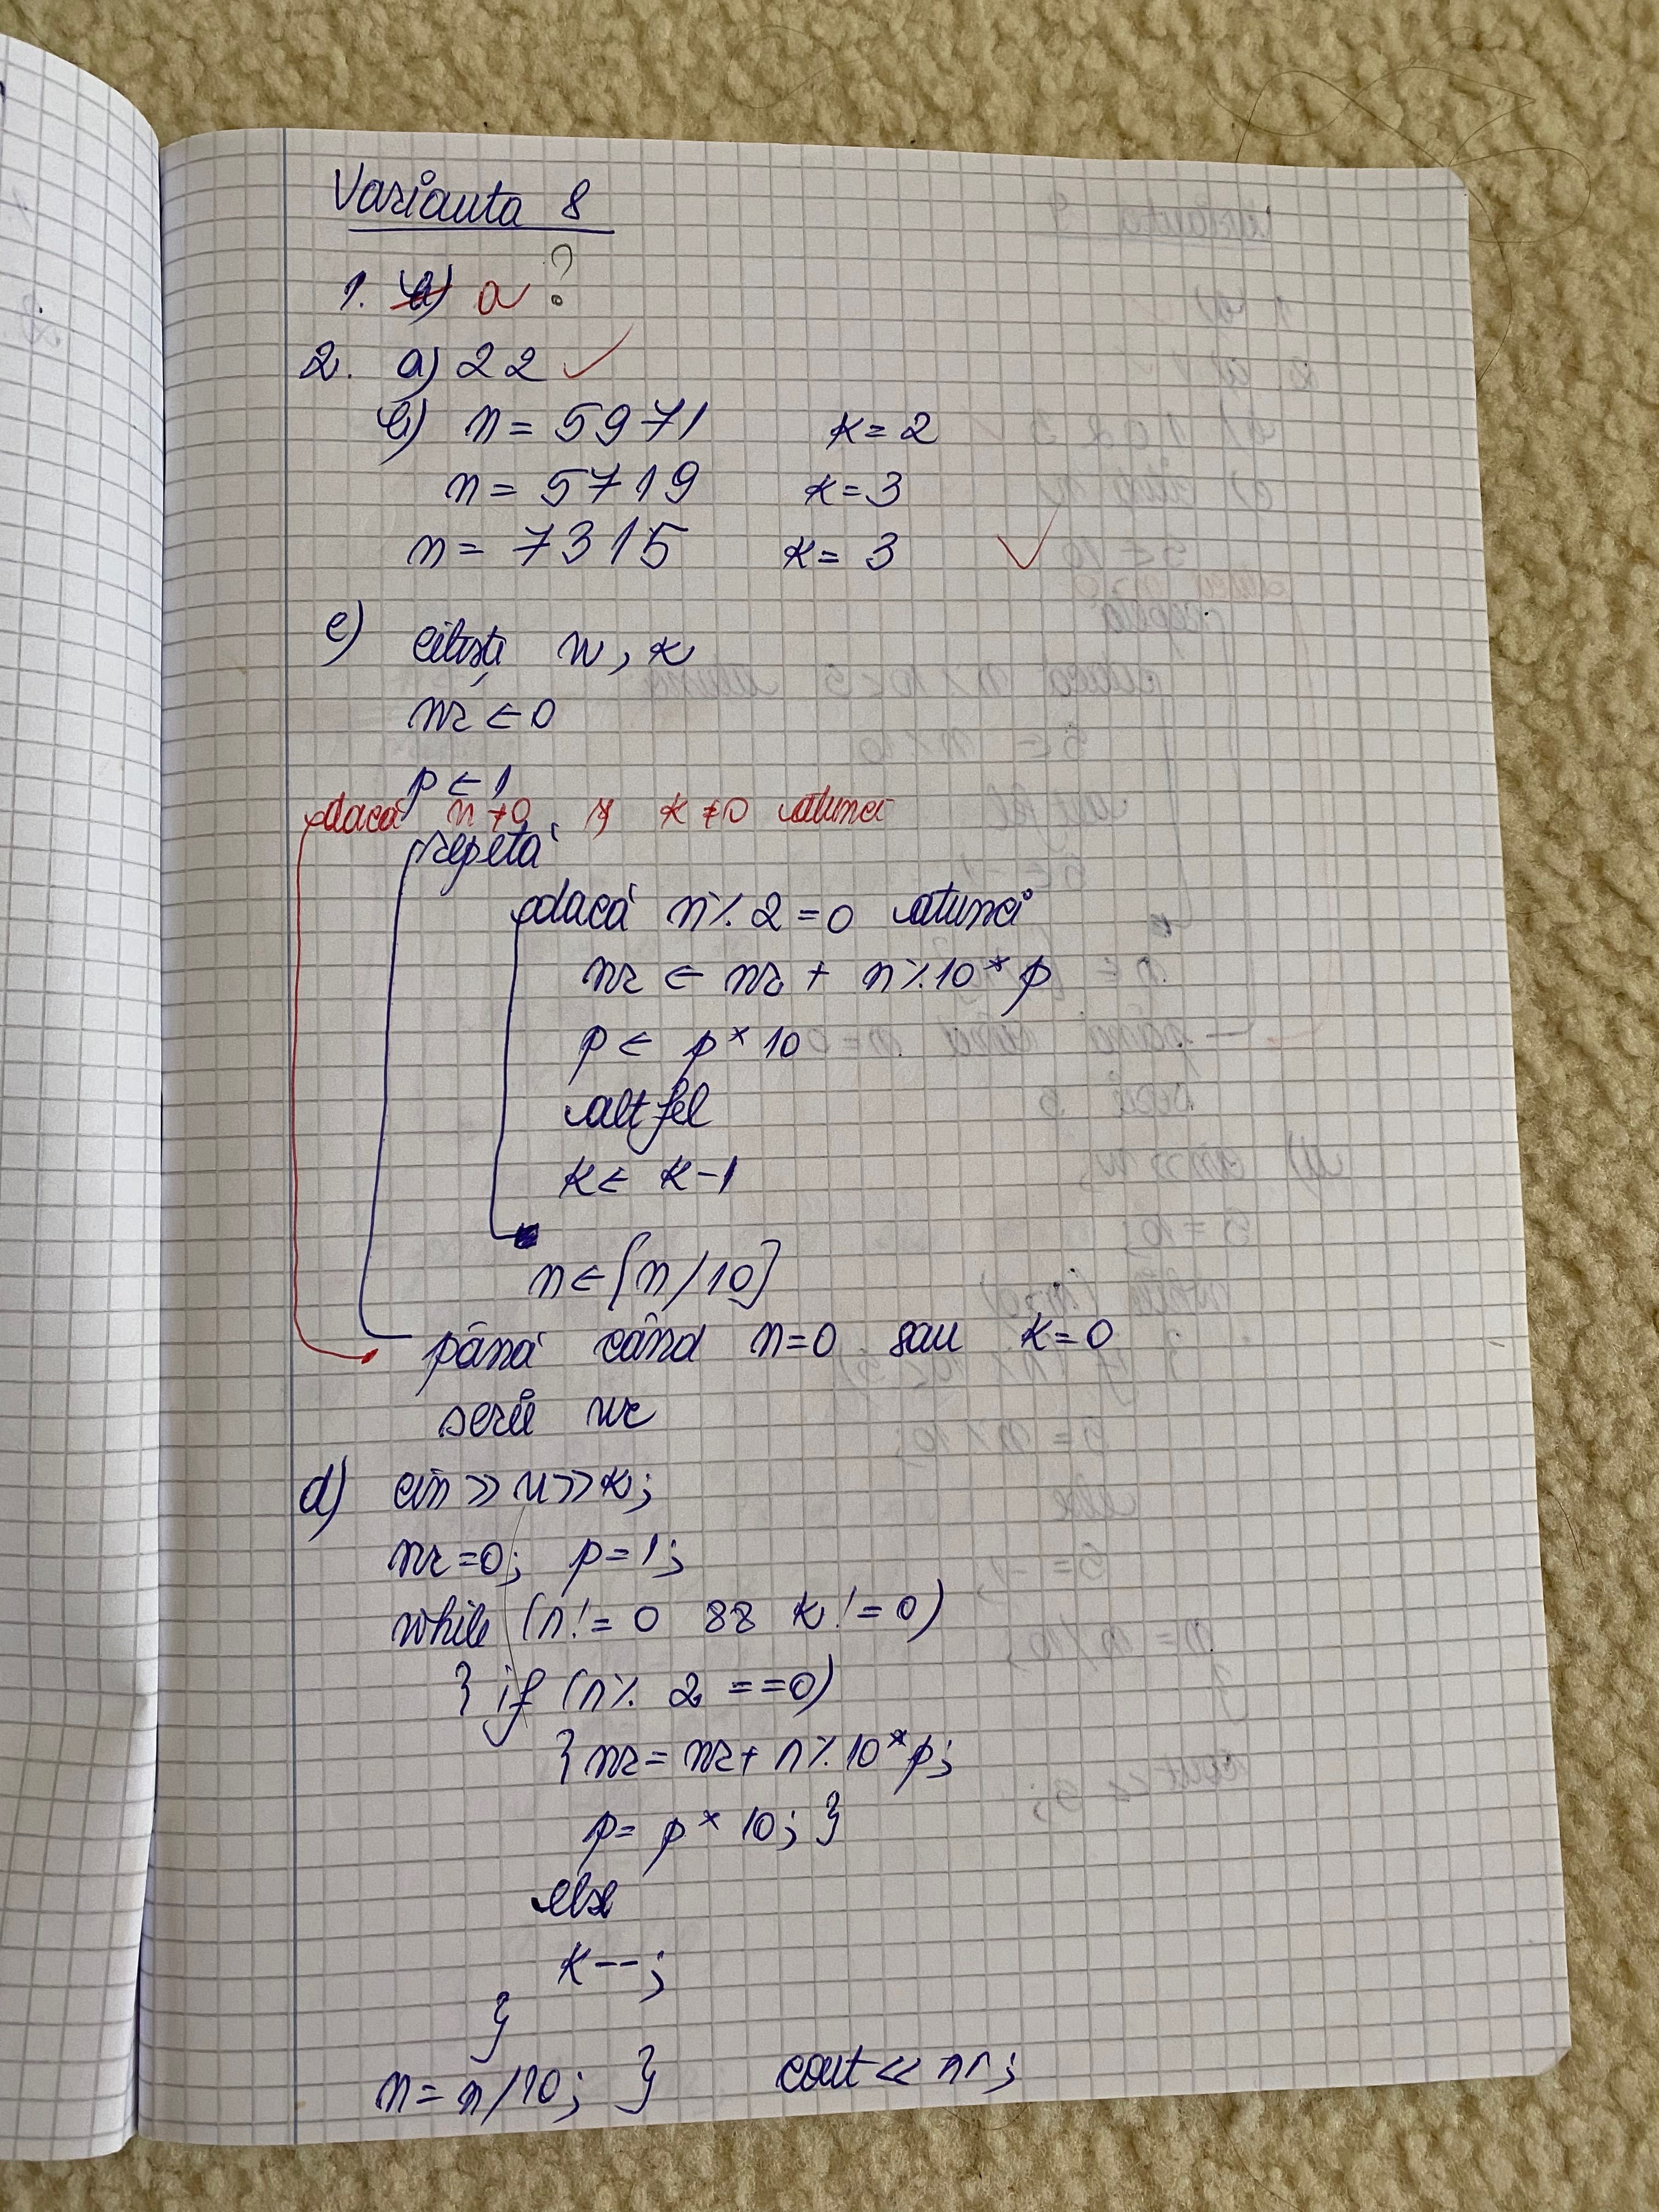 Varianta 8
1. a ?
2. a) 22 ✓
b) n = 5971 k = 2
n = 5719 k = 3
n = 7315 k = 3 ✓
c) citește n, k
nr ← 0
p ← 1
dacă n ≠ 0 și k ≠ 0 atunci
repetă
dacă n % 2 = 0 atunci
nr ← nr + n % 10 * p
p ← p * 10
altfel
k ← k - 1
n ← [n / 10]
până când n = 0 sau k = 0
scrie nr
d) cin >> n >> k;
nr = 0; p = 1;
while (n != 0 && k != 0)
{ if (n % 2 == 0)
{ nr = nr + n % 10 * p;
p = p * 10; }
else
k--;
}
n = n / 10; } cout << nr;